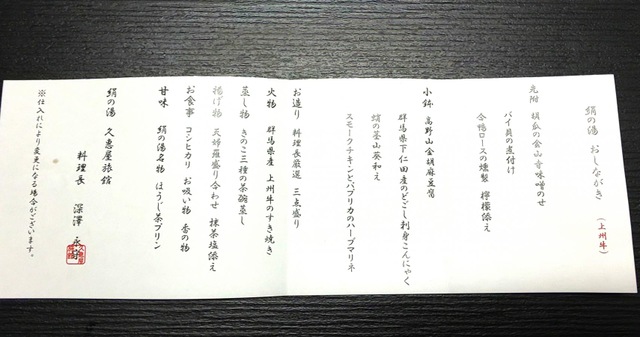 絹の湯 おしながき (上州牛)
先附 胡瓜の金山寺味噌のせ
バイ貝の煮付け
合鴨ロースの燻製 檸檬添え
小鉢 高野山金胡麻豆腐
群馬県下仁田産のどごし刺身こんにゃく
蛸の茎山葵和え
スモークチキンとパプリカのハーブマリネ
お造り 料理長厳選 三点盛り
火物 群馬県産 上州牛のすき焼き
蒸し物 きのこ三種の茶碗蒸し
揚げ物 天婦羅盛り合わせ 抹茶塩添え
お食事 コシヒカリ お吸い物 香の物
甘味 絹の湯名物 ほうじ茶プリン
絹の湯 久惠屋旅館
料理長 深澤
※仕入れにより変更になる場合がございます。